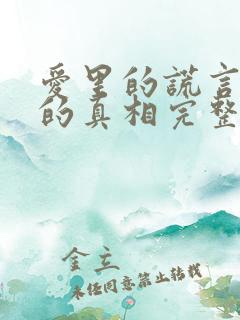 愛里的謊言
的真相完整
金立
未經同意禁止轉載